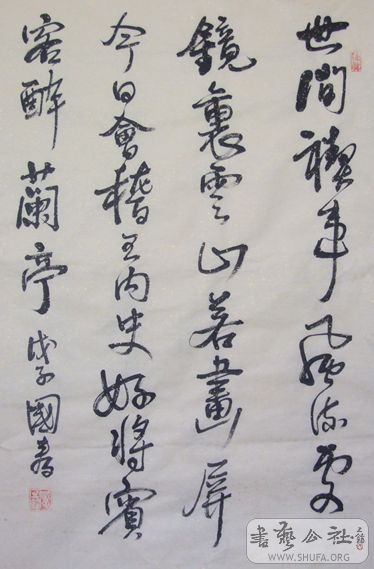 世間禊事風流處
鏡裏雲山若畫屏
今日會稽王內史好將賓
客醉蘭亭
戊子國
書藝公社
WWW.SHUFA.ORG